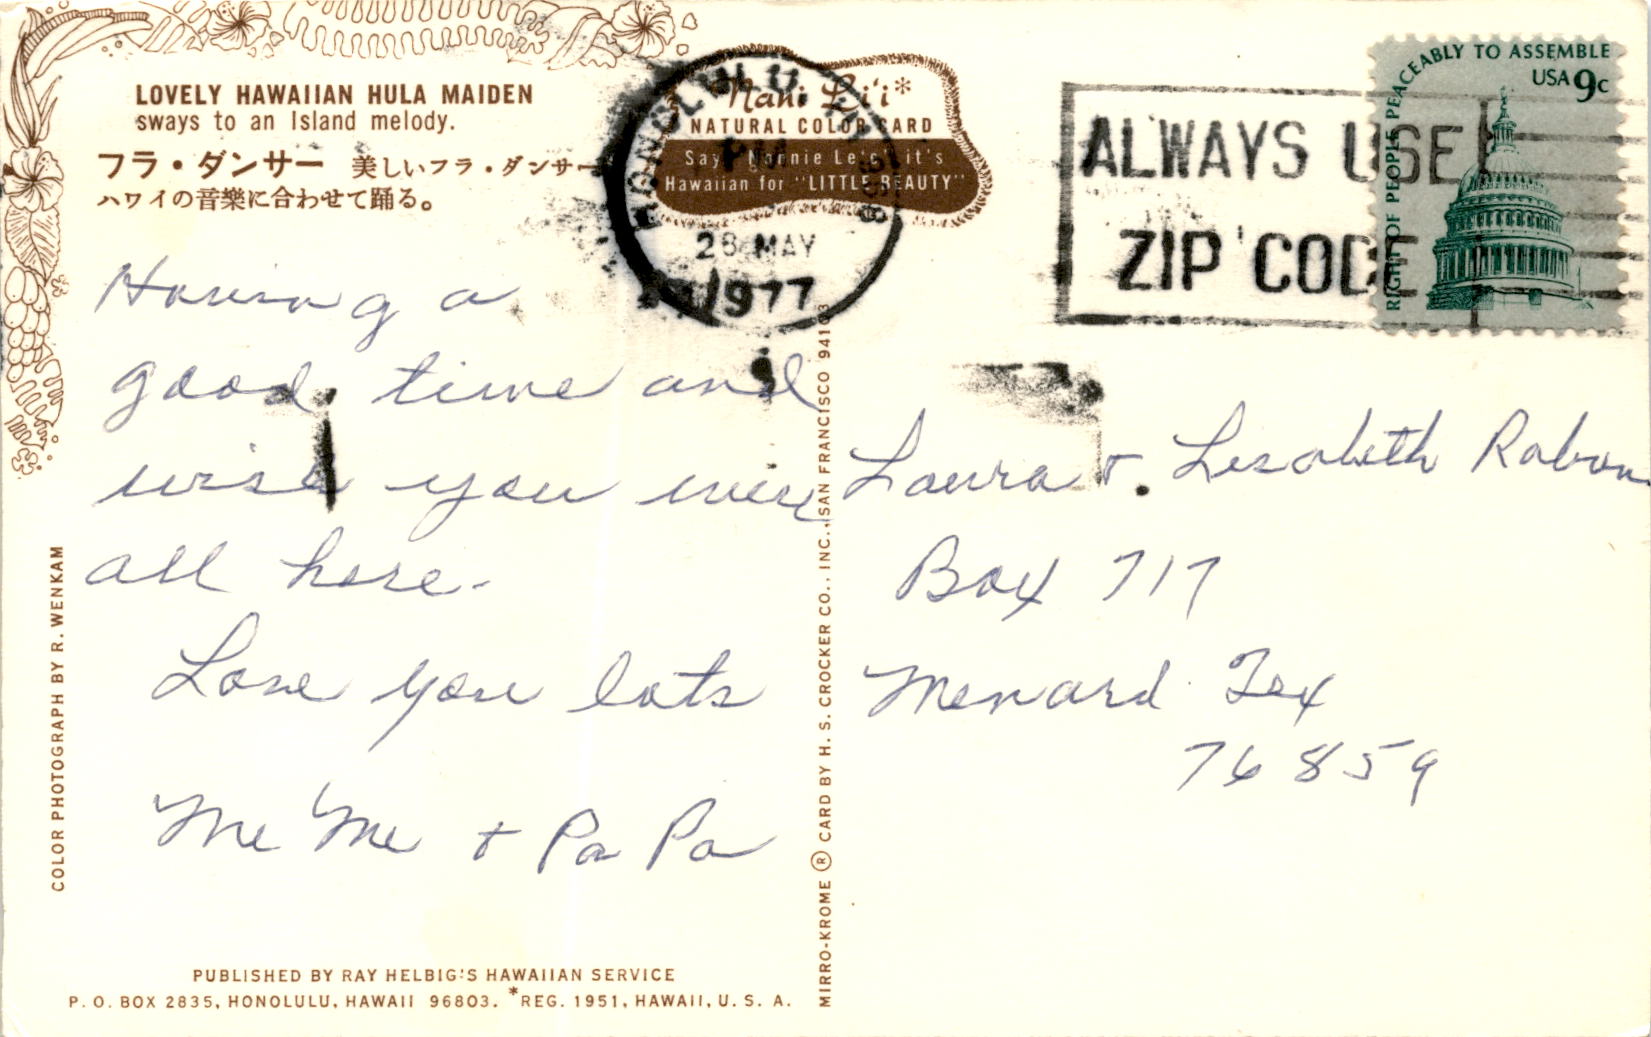 LOVELY HAWAIIAN HULA MAIDEN
sways to an Island melody.
フラ・ダンサー 美しいフラ・ダンサー
ハワイの音樂に合わせて踊る。
Nani Li'i*
NATURAL COLOR CARD
Say, Nannie Le'e, it's
Hawaiian for "LITTLE BEAUTY"
HONOLULU, HI
PM
28 MAY
1977
ALWAYS USE
ZIP CODE
RIGHT OF PEOPLE PEACEABLY TO ASSEMBLE
USA 9c
Having a
good time and
wish you were
all here.
Love you lots
Me Me + Pa Pa
Laura + Lisabeth
Box 717
Menard Tex
76859
COLOR PHOTOGRAPH BY R. WENKAM
MIRRO-KROME ® CARD BY H. S. CROCKER CO., INC., SAN FRANCISCO 94103
PUBLISHED BY RAY HELBIG'S HAWAIIAN SERVICE
P. O. BOX 2835, HONOLULU, HAWAII 96803. *REG. 1951, HAWAII, U. S. A.